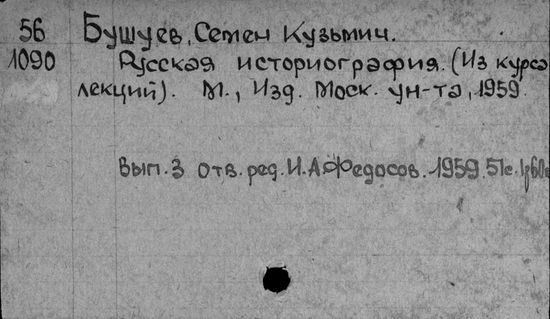 56 Бушуев, Семен Кузьмич.
1090 Русская историография. (Из курса
лекций). М., Изд. Моск. ун-та, 1959.
Вып. 3 Отв. ред. И.А.Федосов. 1959. 51с. 1р60к